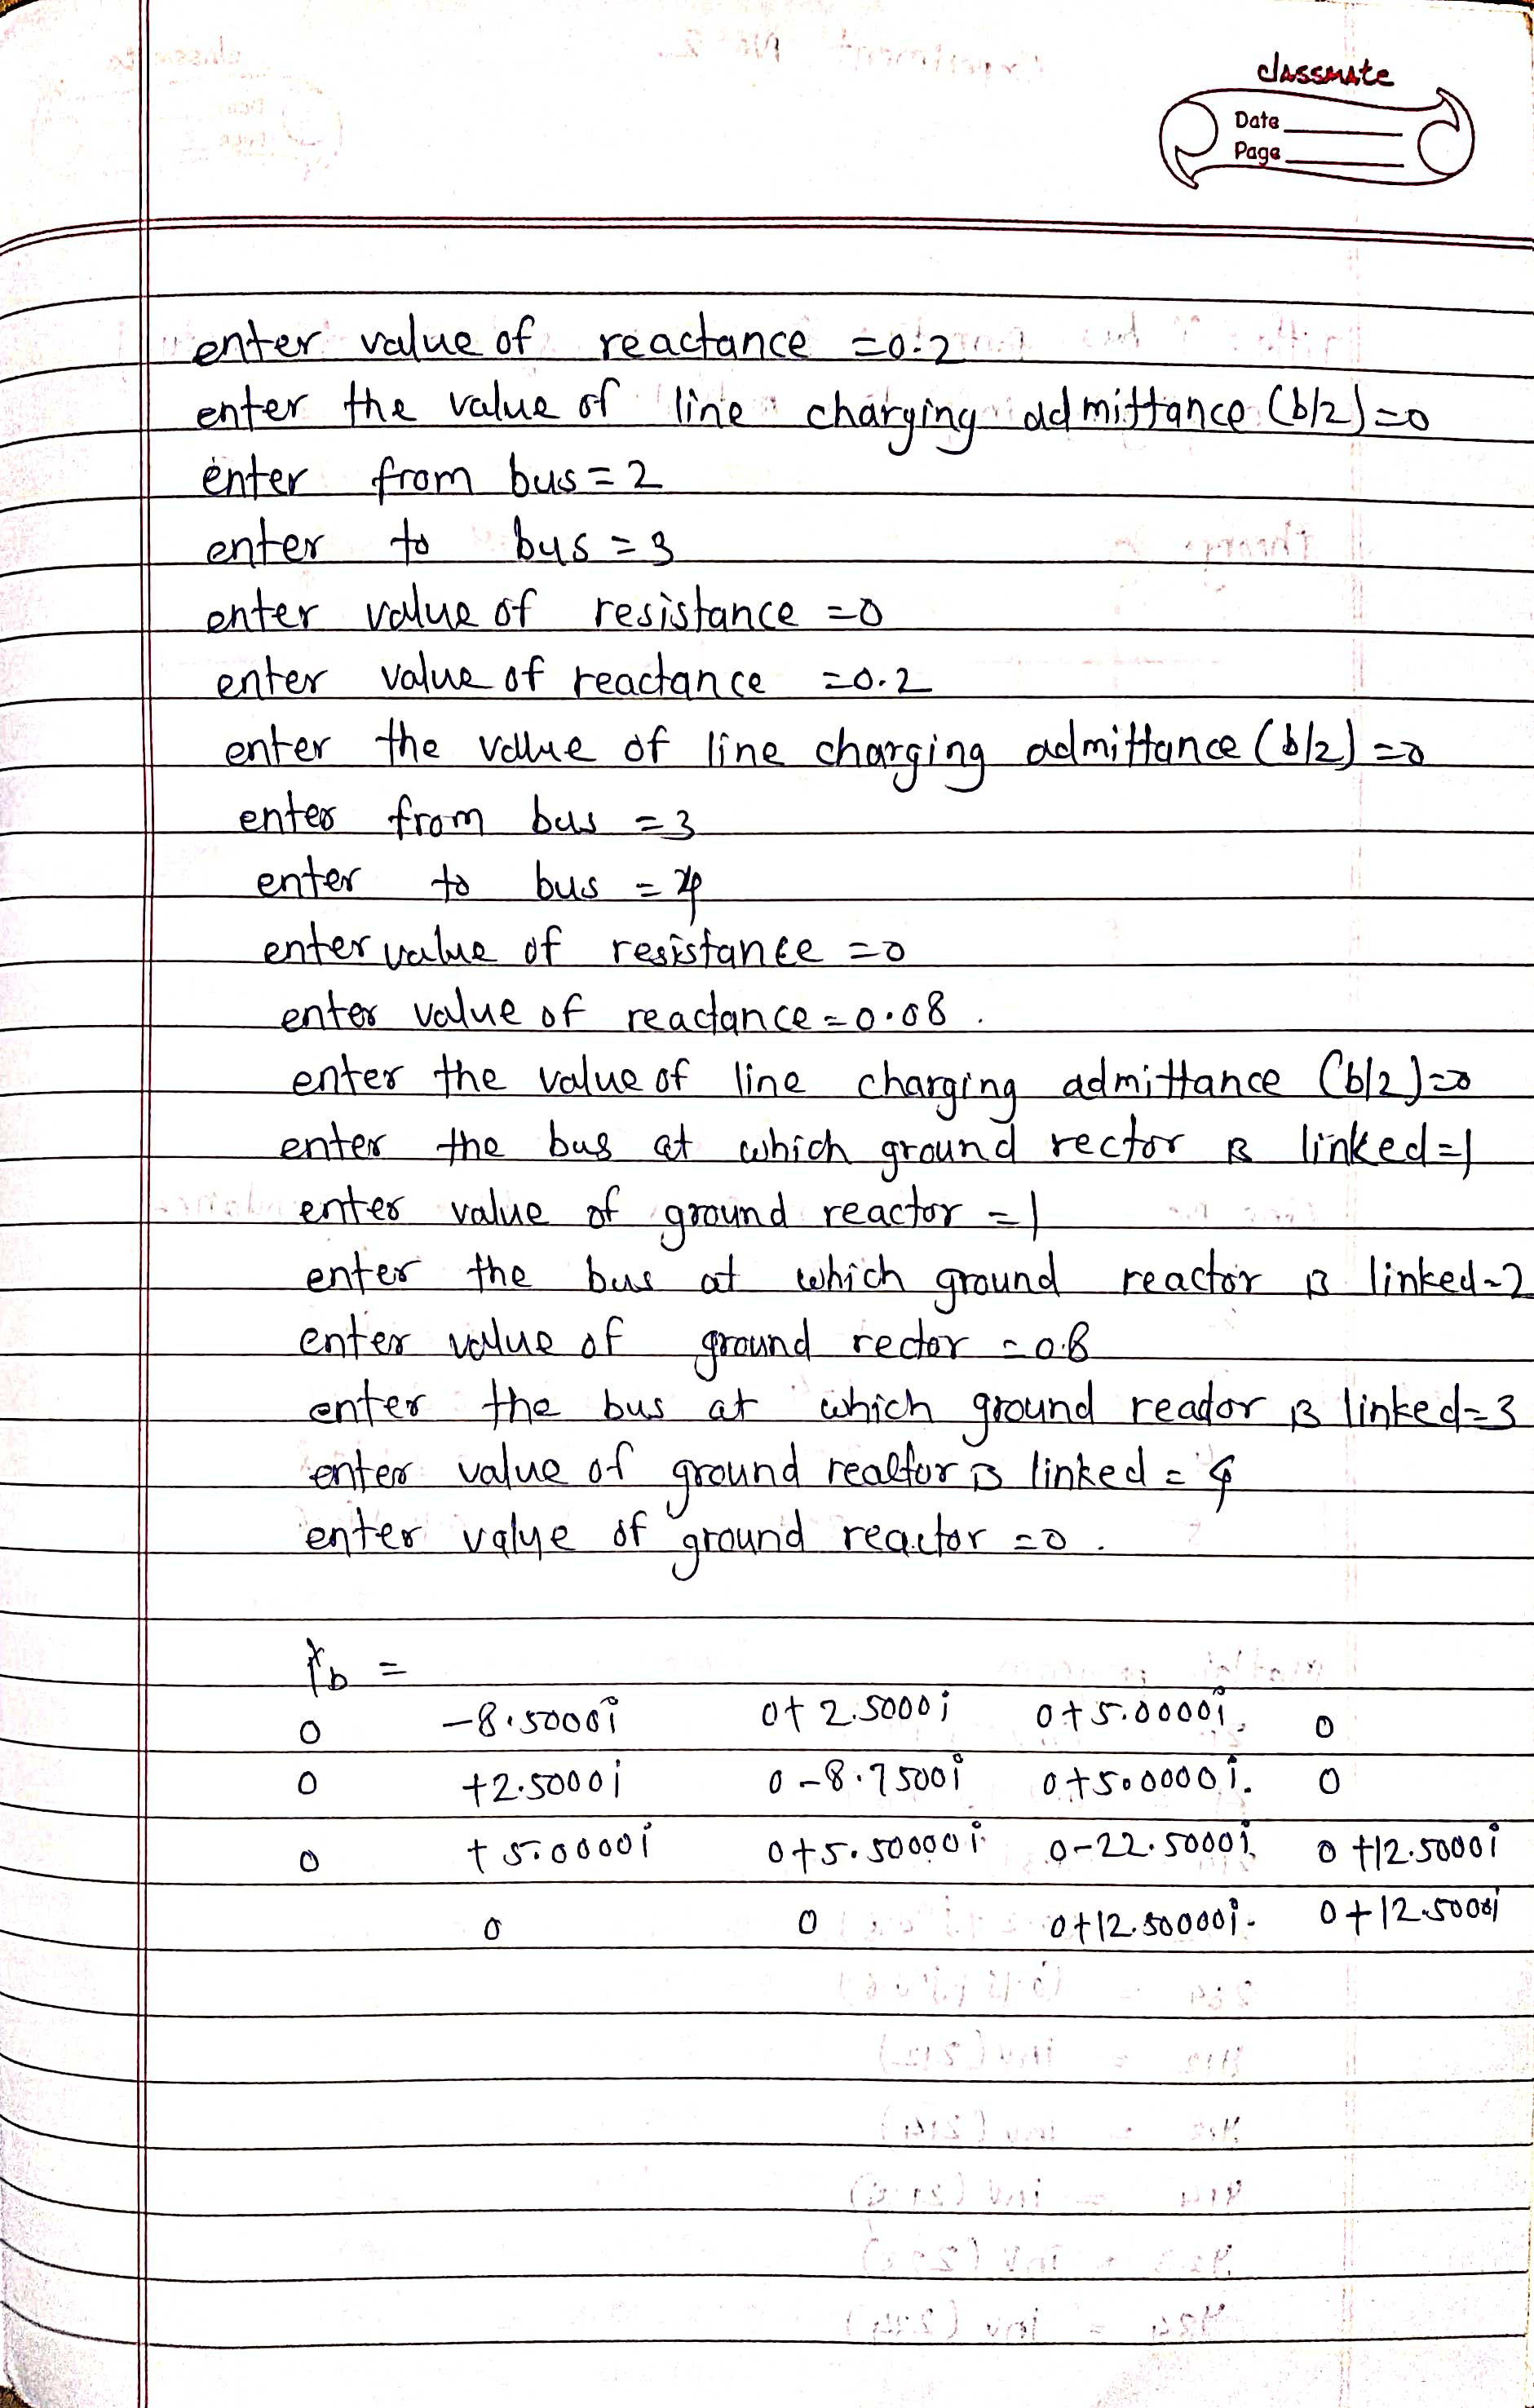 classmate
Date
Page
enter value of reactance =0.2
enter the value of line charging admittance (b/2)=0
enter from bus=2
enter to bus =3
enter value of resistance =0
enter value of reactance =0.2
enter the value of line charging admittance (b/2)=0
enter from bus =3
enter to bus = 4
enter value of resistance =0
enter value of reactance=0.08.
enter the value of line charging admittance (b/2)=0
enter the bus at which ground rector is linked=1
enter value of ground reactor =1
enter the bus at which ground reactor is linked=2
enter value of ground rector =0.8
enter the bus at which ground reactor is linked=3
enter value of ground reactor is linked = 4
enter value of ground reactor =0.
Yb =
0 -8.5000i 0+2.5000i 0+5.0000i. 0
0 +2.5000i 0-8.7500i 0+5.0000i. 0
0 +5.0000i 0+5.50000i 0-22.5000i. 0+12.5000i
0 0 0+12.50000i. 0+12.5000i